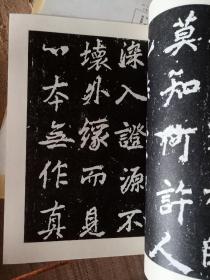 莫知何許人
染入證源不
壞外緣而見
心本無作真